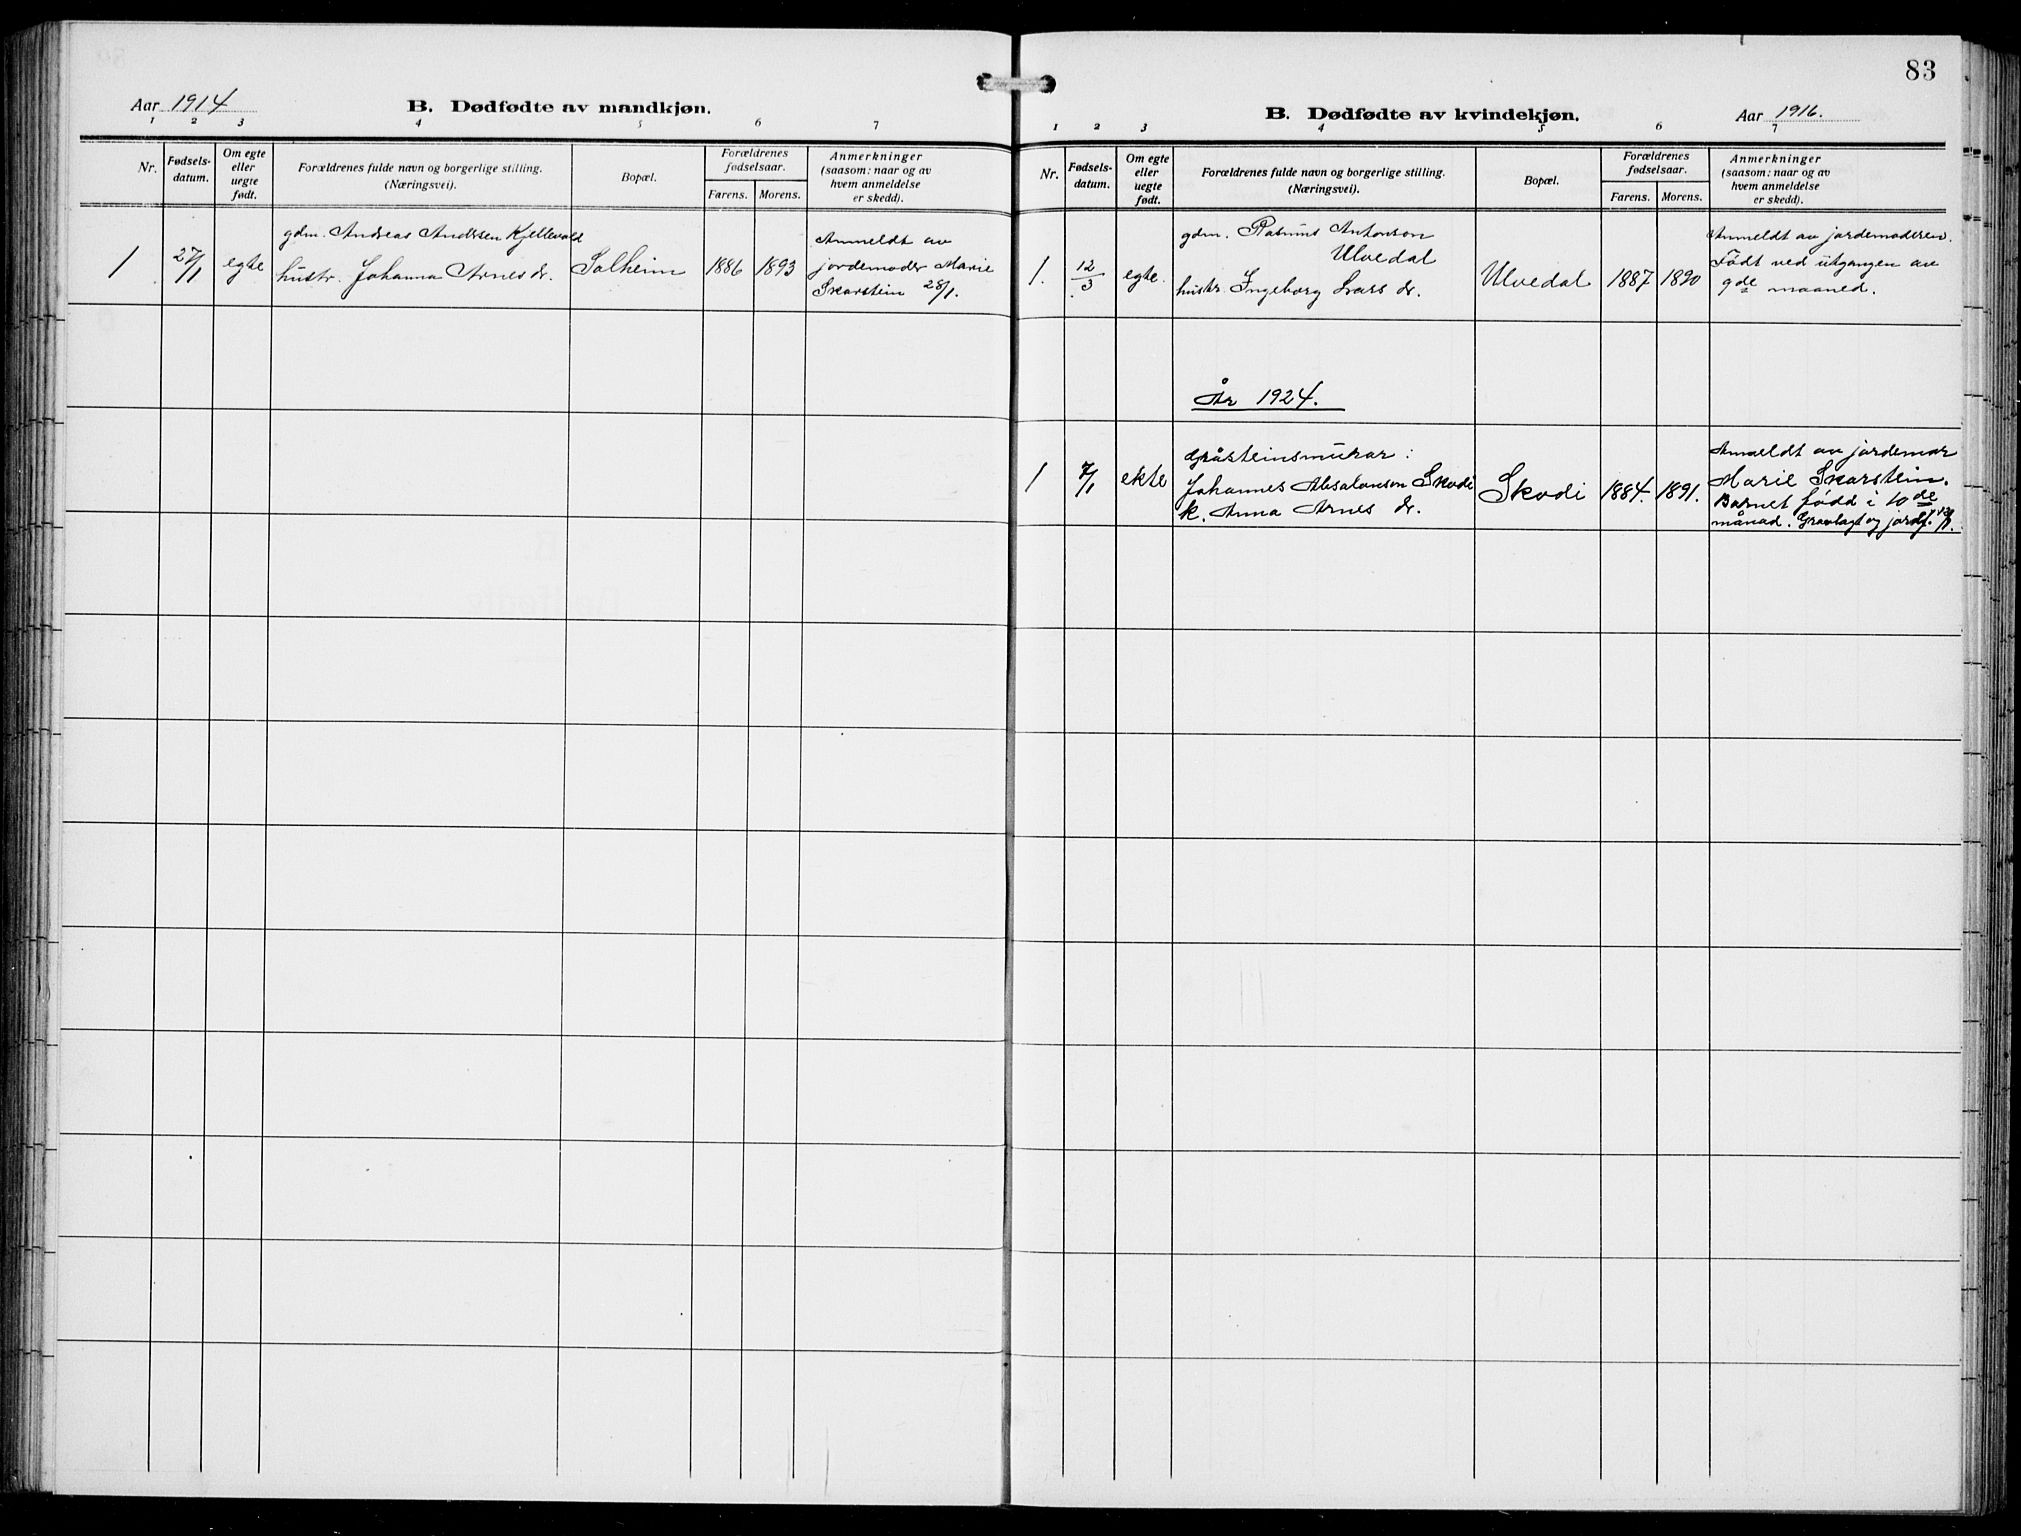 Aar 1914
B. Dødfødte av mandkjøn.
1 2 3 4 5 6 7
Nr.
Fødsels-
datum.
Om egte
eller
uegte
født.
Forældrenes fulde navn og borgerlige stilling.
(Næringsvei).
Bopæl.
Forældrenes
fødselsaar.
Farens. Morens.
Anmerkninger
(saasom: naar og av
hvem anmeldelse
er skedd).
1
27/1
egte
gdm. Andreas Andersen Kjellevold
hustr. Johanna Arnes dr.
Solheim
1886
1893
Anmeldt av
jordemoder Marie
Skarstein 28/1.
83
B. Dødfødte av kvindekjøn.
Aar 1916.
1 2 3 4 5 6 7
Nr.
Fødsels-
datum.
Om egte
eller
uegte
født.
Forældrenes fulde navn og borgerlige stilling.
(Næringsvei).
Bopæl.
Forældrenes
fødselsaar.
Farens. Morens.
Anmerkninger
(saasom: naar og av
hvem anmeldelse
er skedd).
1.
12/3
egte.
gdm. Rasmus Antonson
Ulvedal
hustr. Ingeborg Lars dr.
Ulvedal
1887
1890
Anmeldt av jordemoderen.
Født ved utgangen av
9de maaned.
År 1924.
1
7/1
ekte
Gråsteinsmurar:
Johannes Absalonson Skodi
k. Anna Arnes dr.
Skodi
1884.
1891.
Anmeldt av jordemor
Marie Skarstein.
Barnet fødd i 10de
månad. Gravlagt og jordf.